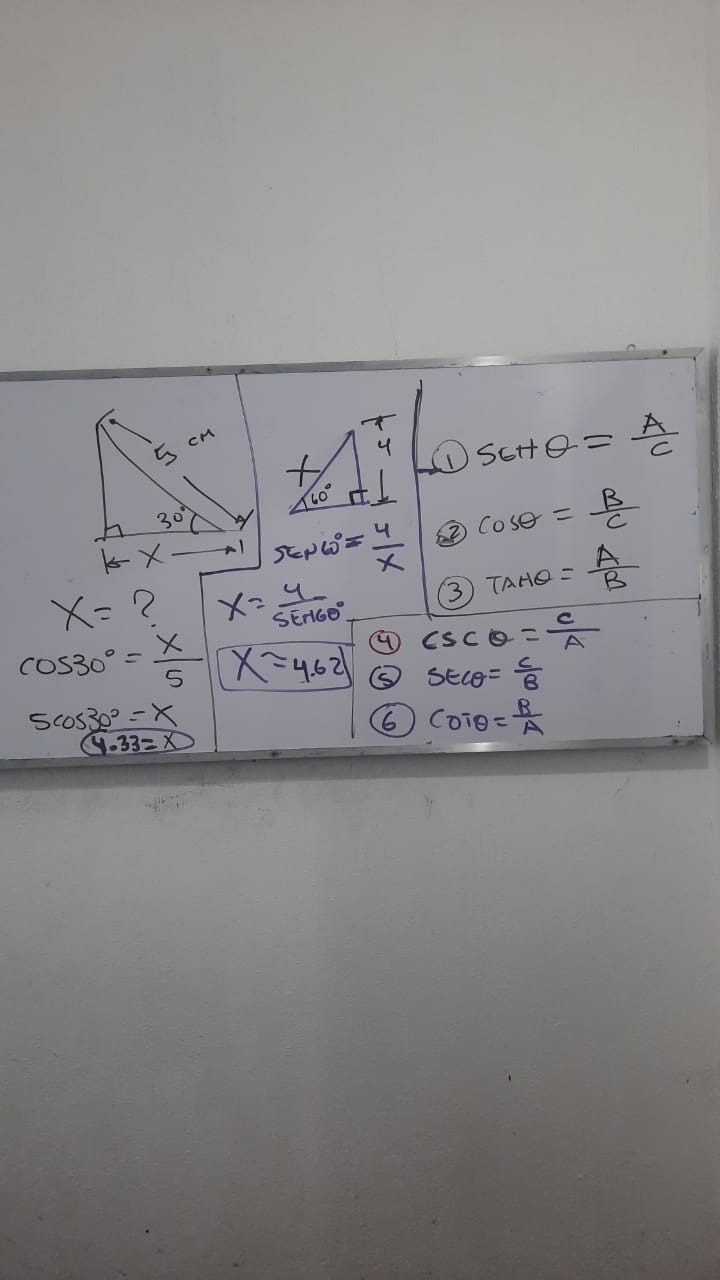 5 cm
30°
x
x = ?
cos30° = x/5
5cos30° = x
4.33 = x
x
4
60°
SEN60° = 4/x
x = 4/SEN60°
x = 4.62
① SENθ = A/C
② COSθ = B/C
③ TANθ = A/B
④ CSCθ = C/A
⑤ SECθ = C/B
⑥ COTθ = B/A